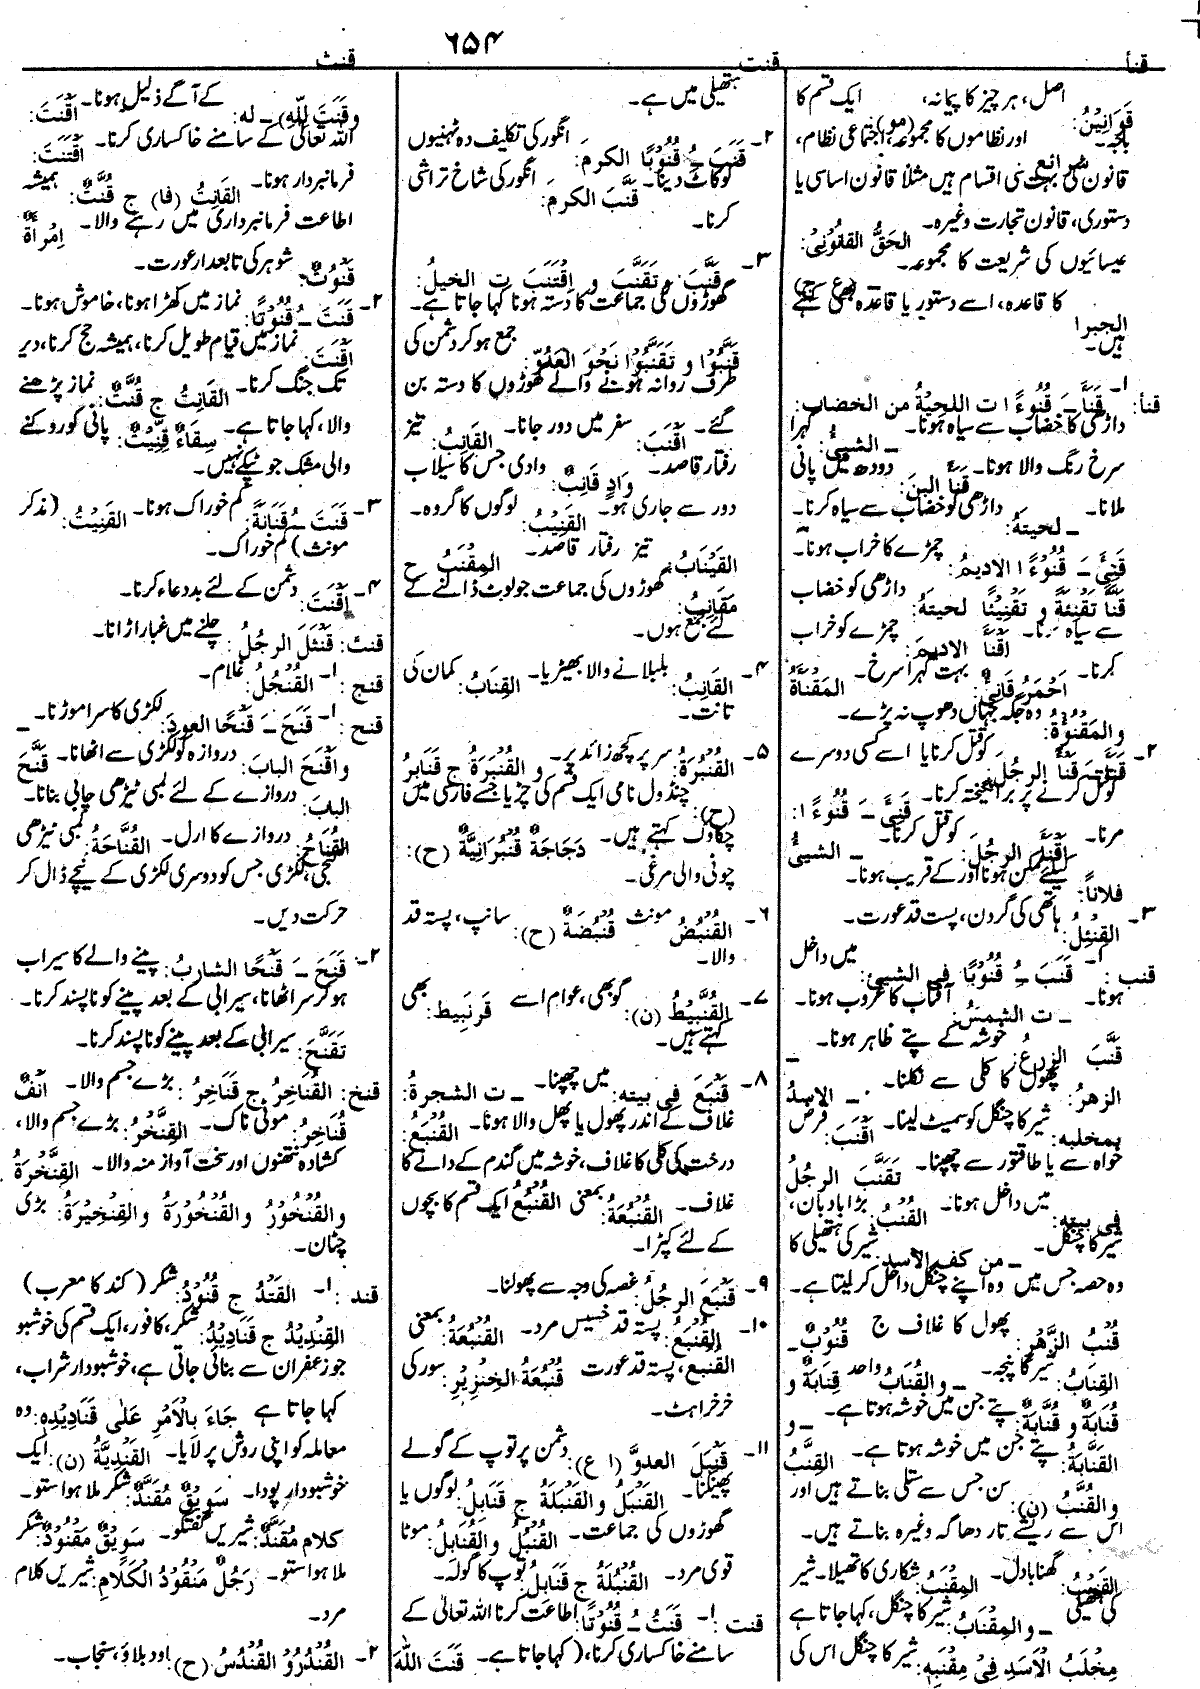 ۶۵۴
قنأ
قنت
قنث
اصل، ہر چیز کا پیمانہ، ایک قسم کا
قَوَانِیْنُ:
باجہ۔ اور نظاموں کا مجموعہ، (مو) اجتماعی نظام،
قانون کی بہت سی اقسام ہیں مثلاً قانون اساسی یا
دستوری، قانون تجارت وغیرہ۔ الحَقُّ القانُونِیُ:
عیسائیوں کی شریعت کا مجموعہ۔
کا قاعدہ، اسے دستور یا قاعدہ بھی کہتے
الجبرا
ہیں۔
قنأ: ۱۔ قَنَأَ ـَ قُنُوْءًا ت اللحیةُ من الخضاب:
داڑھی کا خضاب سے سیاہ ہونا۔ ـ الشیئُ: گہرا
سرخ رنگ والا ہونا۔ قَنَأَ اللبنَ: دودھ میں پانی
ملانا۔ ـ لحیتهُ: داڑھی کو خضاب سے سیاہ کرنا۔
قَنِئَ ـَ قُنُوْءًا الادیمُ: چمڑے کا خراب ہونا۔
قَنَّأَ تَقْنِئَةً و تَقْنِیْئًا لحیتهُ: داڑھی کو خضاب
سے سیاہ کرنا۔ اَقْنَأَ الادیمَ: چمڑے کو خراب
کرنا۔ اَحْمَرُ قَانِیٌ: بہت گہرا سرخ۔ المَقْنَأَةُ
والمَقْنُوَةُ: وہ جگہ جہاں دھوپ نہ پڑے۔
۲۔ قَنَأَ الرجلَ: کو قتل کرنا یا اسے کسی دوسرے
کو قتل کرنے پر برانگیختہ کرنا۔ قَنِئَ ـَ قُنُوْءًا:
مرنا۔ اَقْنَأَ الرجلَ: کو قتل کرنا۔ ـ الشیئُ
فلاناً: کیلئے ممکن ہونا اور کے قریب ہونا۔
۳۔ القِنْئِلُ: ہاتھی کی گردن، پست قد عورت۔
قنب: ۱۔ قَنَبَ ـُ قُنُوْبًا فی الشیئ: میں داخل
ہونا۔ ـ ت الشمسُ: آفتاب کا غروب ہونا۔
قَنَّبَ الزرعُ: خوشہ کے پتے ظاہر ہونا۔ ـ
الزهرُ: پھول کا کلی سے نکلنا۔ ـ الاسدُ
بمخلبه: شیر کا چنگل کو سمیٹ لینا۔ اَقْنَبَ: قرض
خواہ سے یا طاقتور سے چھپنا۔ تَقَنَّبَ الرجلُ
فی بیته: میں داخل ہونا۔ القُنْبُ: بڑا بادبان،
شیر کا چنگل۔ ـ من کف الاسد: شیر کی ہتھیلی کا
وہ حصہ جس میں وہ اپنے چنگل داخل کر لیتا ہے۔
قُنْبُ الزَّهْرِ: پھول کا غلاف ج قُنُوْبٌ۔
القِنَابُ: شیر کا پنجہ۔ ـ والقُنَابُ واحد قِنَابَةٌ و
قُنَابَةٌ و قُنَّابَةٌ: پتے جن میں خوشہ ہوتا ہے۔ ـ و
القَنَّابَةُ: پتے جن میں خوشہ ہوتا ہے۔ القِنَّبُ
والقُنَّبُ (ن): سن جس سے ستلی بناتے ہیں اور
اس سے ریشے تار دھاگہ وغیرہ بناتے ہیں۔
القَنِیْبُ: گھنا بادل۔ المِقْنَبُ: شکاری کا تھیلا۔ شیر
کی ہتھیلی ـ والمِقْنَابُ: شیر کا چنگل، کہا جاتا ہے
مِخْلَبُ الْاَسَدِ فِیْ مِقْنَبِهٖ: شیر کا چنگل اس کی
ہتھیلی میں ہے۔
۲۔ قَنَبَ ـُ قُنُوْبًا الکرمَ: انگور کی تکلیف دہ ٹہنیوں
کو کاٹ دینا۔ قَنَّبَ الکرمَ: انگور کی شاخ تراشی
کرنا۔
۳۔ قَنَّبَ و تَقَنَّبَ و اِقْتَنَبَ ت الخیلُ:
گھوڑوں کی جماعت کا دستہ ہونا کہا جاتا ہے۔
قَنَّبُوْا و تَقَنَّبُوْا نَحْوَ الْعَدُوِّ: جمع ہو کر دشمن کی
طرف روانہ ہونے والے گھوڑوں کا دستہ بن
گئے۔ اَقْنَبَ: سفر میں دور جانا۔ القَانِبُ: تیز
رفتار قاصد۔ وَادٍ قَانِبٌ: وادی جس کا سیلاب
دور سے جاری ہو۔ القَنِیْبُ: لوگوں کا گروہ۔
القَیْنَابُ: تیز رفتار قاصد۔ المِقْنَبُ ج
مَقَانِبُ: گھوڑوں کی جماعت جو لوٹ ڈالنے کے
لئے جمع ہوں۔
۴۔ القَانِبُ: بلبلانے والا بھیڑیا۔ القِنَابُ: کمان کی
تانت۔
۵۔ القُنْبُرَةُ: سر پر کچھ زائد پر۔ و القُنْبَرَةُ ج قَنَابِرُ
(ح): چنڈول نامی ایک قسم کی چڑیا جسے فارسی میں
چکاوک کہتے ہیں۔ دَجَاجَةٌ قُنْبُرَانِیَّةٌ (ح):
چوٹی والی مرغی۔
۶۔ القُنْبُضُ مونث قُنْبُضَةٌ (ح): سانپ، پستہ قد
والا۔
۷۔ القُنَّبِیْطُ (ن): گوبھی، عوام اسے قَرْنَبِیط: بھی
کہتے ہیں۔
۸۔ قَنْبَعَ فی بیته: میں چھپنا۔ ـ ت الشجرةُ:
غلاف کے اندر پھول یا پھل والا ہونا۔ القُنْبُعُ:
درخت کی کلی کا غلاف، خوشہ میں گندم کے دانے کا
غلاف۔ القُنْبُعَةُ: بمعنی القُنْبُعُ ایک قسم کا بچوں
کے لئے کپڑا۔
۹۔ قَنْبَعَ الرجلُ: غصہ کی وجہ سے پھولنا۔
۱۰۔ القُنْبُعُ: پستہ قد خسیس مرد۔ القُنْبُعَةُ: بمعنی
القُنْبُع، پستہ قد عورت قُنْبُعَةُ الخِنْزِیْرِ: سور کی
خرخراہٹ۔
۱۱۔ قَنْبَلَ العدوَّ (ا ع): دشمن پر توپ کے گولے
پھینکنا۔ القَنْبَلُ والقَنْبَلَةُ ج قَنَابِلُ: لوگوں یا
گھوڑوں کی جماعت۔ القُنْبُلُ والقُنَابِلُ: موٹا
قوی مرد۔ القُنْبُلَةُ ج قَنَابِلُ: توپ کا گولہ۔
قنت: ۱۔ قَنَتَ ـُ قُنُوْتًا: اطاعت کرنا اللہ تعالیٰ کے
سامنے خاکساری کرنا، (کہا جاتا ہے۔ قَنَتَ اللّٰهَ
وقَنَتَ لِلّٰهِ) ـ له: کے آگے ذلیل ہونا۔ اَقْنَتَ:
اللہ تعالیٰ کے سامنے خاکساری کرنا۔ اِقْتَنَتَ:
فرمانبردار ہونا۔ القَانِتُ (فا) ج قُنَّتٌ: ہمیشہ
اطاعت فرمانبرداری میں رہنے والا۔ اِمْرَأةٌ
قَنُوْتٌ: شوہر کی تابعدار عورت۔
۲۔ قَنَتَ ـُ قُنُوْتًا: نماز میں کھڑا ہونا، خاموش ہونا۔
اَقْنَتَ: نماز میں قیام طویل کرنا، ہمیشہ حج کرنا، دیر
تک جنگ کرنا۔ القَانِتُ ج قُنَّتٌ: نماز پڑھنے
والا، کہا جاتا ہے۔ سِقَاءٌ قِنِّیْتٌ: پانی کو روکنے
والی مشک جو ٹپکے نہیں۔
۳۔ قَنُتَ ـُ قَنَاتَةً: کم خوراک ہونا۔ القَنِیْتُ: (مذکر
مونث) کم خوراک۔
۴۔ اَقْنَتَ: دشمن کے لئے بددعاء کرنا۔
قنث: قَنْثَلَ الرجُلُ: چلنے میں غبار اڑانا۔
قنج: ۱۔ القُنْجُلُ: غلام۔
قنح: ۱۔ قَنَحَ ـَ قَنْحًا العودَ: لکڑی کا سرا موڑنا۔ ـ
و اَقْنَحَ البابَ: دروازہ کو لکڑی سے اٹھانا۔ قَنَّحَ
البابَ: دروازے کے لئے لمبی ٹیڑھی چابی بنانا۔
القُنَاحُ: دروازے کا ارل۔ القُنَّاحَةُ: لمبی ٹیڑھی
کنجی، لکڑی جس کو دوسری لکڑی کے نیچے ڈال کر
حرکت دیں۔
۲۔ قَنَحَ ـَ قَنْحًا الشاربُ: پینے والے کا سیراب
ہو کر سر اٹھانا، سیرابی کے بعد پینے کو ناپسند کرنا۔
تَقَنَّحَ: سیرابی کے بعد پینے کو ناپسند کرنا۔
قنخ: القُنَاخِرُ ج قَنَاخِرُ: بڑے جسم والا۔ اَنْفٌ
قُنَاخِرٌ: موٹی ناک۔ القِنَّخْرُ: بڑے جسم والا،
کشادہ نتھنوں اور سخت آواز منہ والا۔ القِنَّخْرَةُ
والقُنْخُوْرُ والقُنْخُوْرَةُ والقِنْخِیْرَةُ: بڑی
چٹان۔
قند: ۱۔ القَنْدُ ج قُنُوْدٌ: شکر (کند کا معرب)
القِنْدِیْدُ ج قَنَادِیْدُ: شکر، کافور، ایک قسم کی خوشبو
جو زعفران سے بنائی جاتی ہے، خوشبودار شراب،
کہا جاتا ہے جَاءَ بِالْاَمْرِ عَلٰی قَنَادِیْدِهٖ: وہ
معاملہ کو اپنی روش پر لایا۔ القَنْدِیَّةُ (ن): ایک
خوشبودار پودا۔ سَوِیْقٌ مُقَنَّدٌ: شکر ملا ہوا ستو۔
کلام مُقَنَّدٌ: شیریں گفتگو۔ سَوِیْقٌ مَقْنُوْدٌ: شکر
ملا ہوا ستو۔ رَجُلٌ مَنْقُوْدُ الْکَلَامِ: شیریں کلام
مرد۔
۲۔ القُنْدُرُ و القُنْدُسُ (ح): اود بلاؤ، سنجاب۔